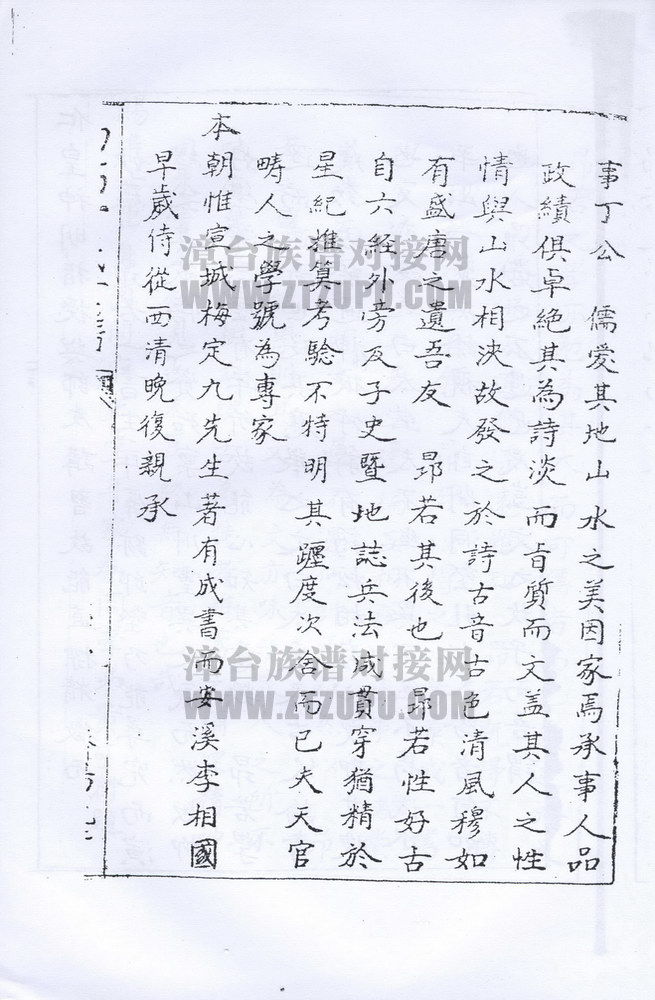 事丁公 儒愛其地山水之美因家焉承事人品
政績俱卓絕其為詩淡而旨質而文蓋其人之性
情與山水相浹故發之於詩古音古色清風穆如
有盛唐之遺吾友 昴若其後也 昴若性好古
自六經外旁及子史暨地誌兵法咸貫穿猶精於
星紀推算考驗不特明其躔度次舍而已夫天官
疇人之學號為專家
本朝惟宣城梅定九先生著有成書而安溪李相國
早歲侍從西清晚復親承
漳台族谱对接网
WWW.ZTZUPU.COM
漳台族谱对接网
WWW.ZTZUPU.COM